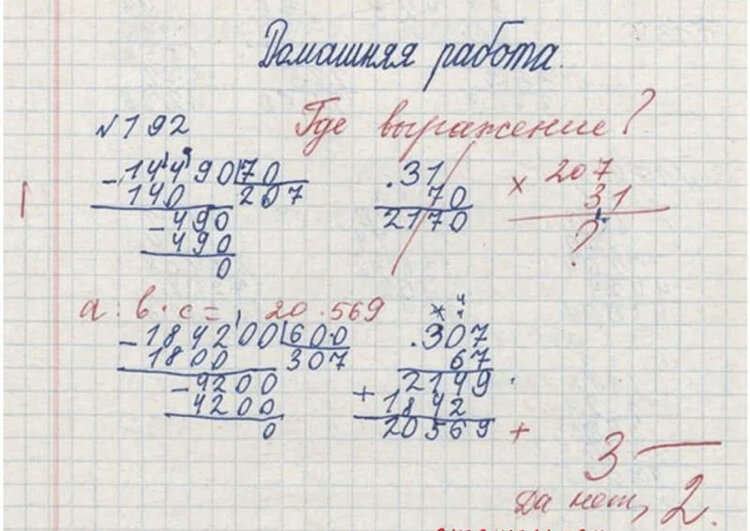 Домашняя работа.
№192 Где выражение?
- 14490 | 70 .31 × 207
140 207 70 31
- 490 2170 ?
490
0
a : b · c = 20.569
- 184200 | 600 .307
1800 307 67
- 4200 2149
4200 + 1842
0 20569 +
3 —
Да нет, 2.